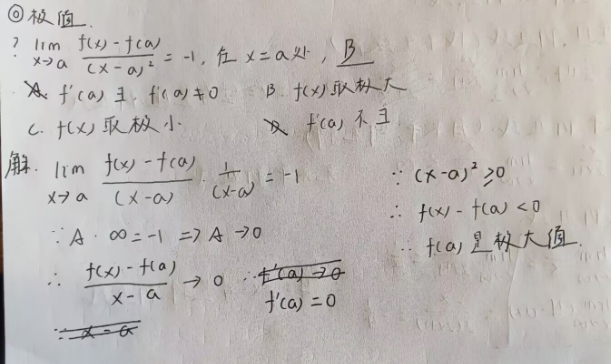 ◎极值.
? lim x→a f(x)-f(a) / (x-a)² = -1, 在 x=a处, B
A. f'(a) ∃. f'(a)≠0 B. f(x)取极大
C. f(x)取极小 D. f'(a)不∃.
解. lim x→a f(x)-f(a) / (x-a) · 1/(x-a) = -1
∵ A·∞=-1 => A→0
∴ f(x)-f(a) / x-a → 0 ∴ f'(a)→0
f'(a)=0
∵ x-a
∵ (x-a)²≥0
∴ f(x)-f(a)<0
∴ f(a)是极大值.